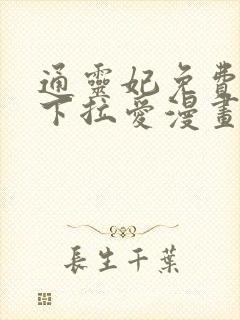 通靈妃免費
下拉愛漫畫
長生千葉